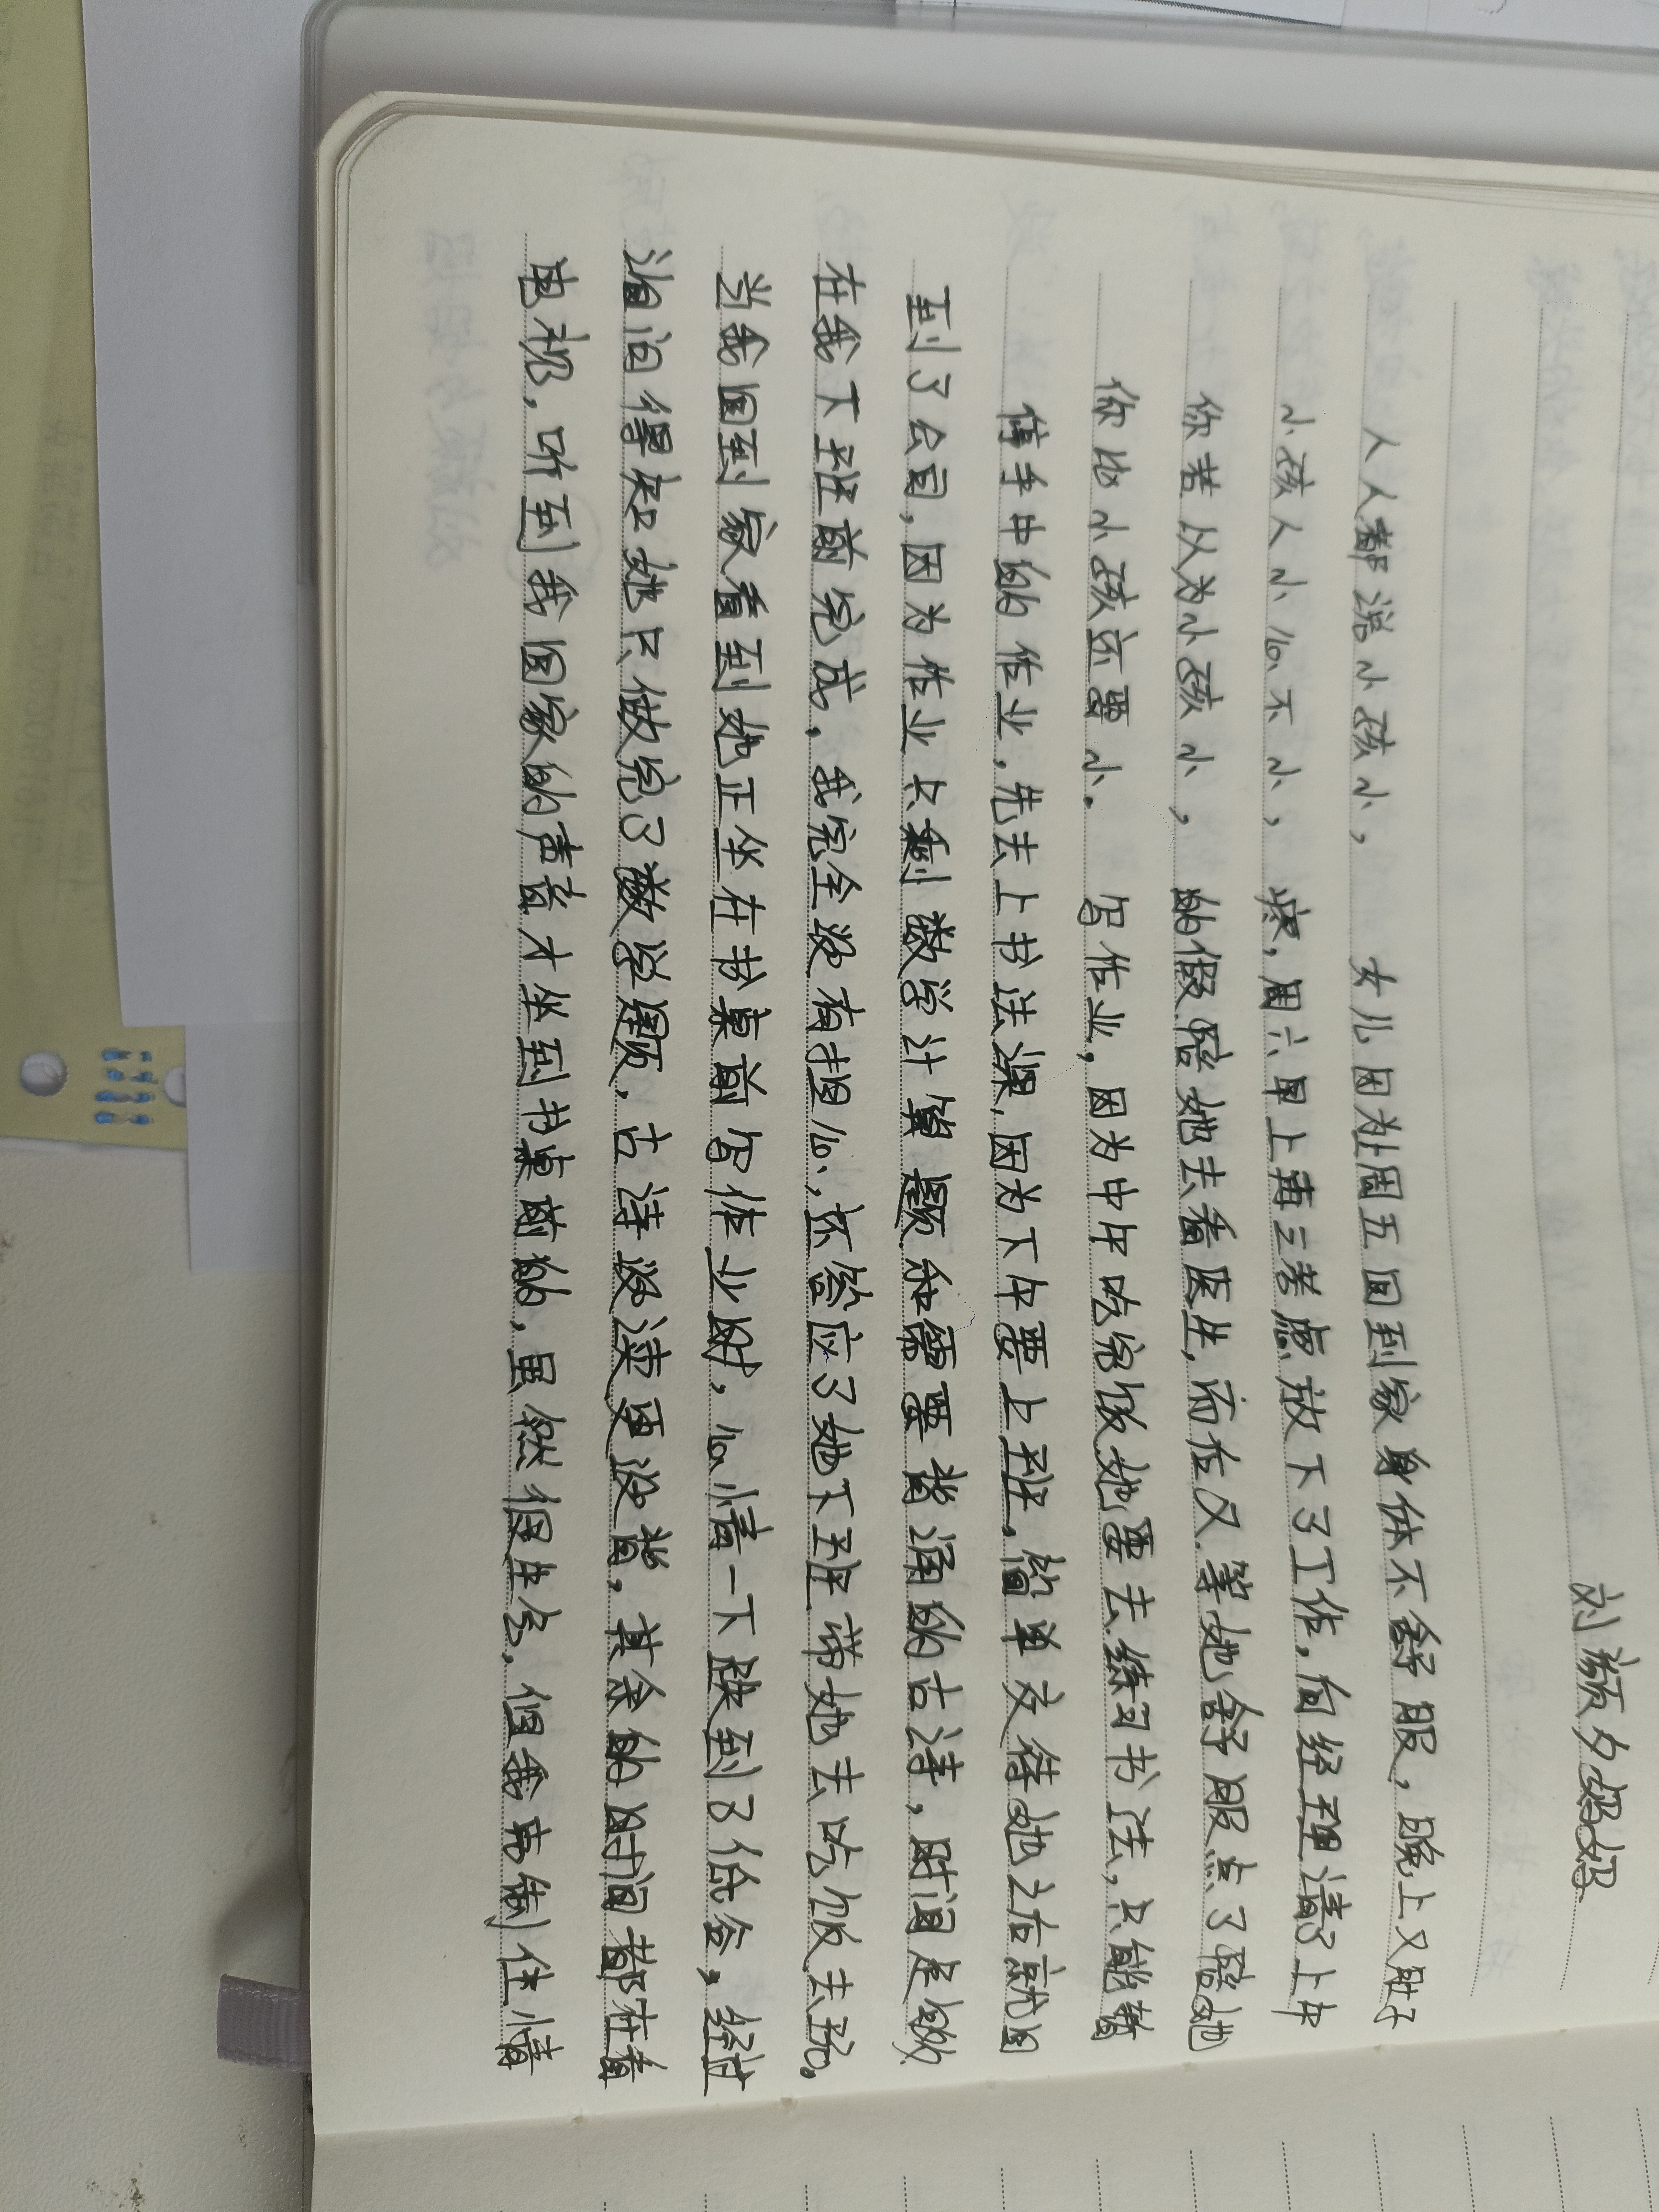 刘颜夕妈妈
人人都说小孩小， 女儿因为周五回到家身体不舒服，晚上又肚子
小孩人小心不小， 疼，周六早上再三考虑放下了工作，向经理请了上午
你若以为小孩小， 的假陪她去看医生，而后又等她舒服点了陪她
你比小孩还要小。 写作业，因为中午吃完饭她要去练习书法，只能暂
停手中的作业，先去上书法课，因为下午要上班，简单交待她之后就回
到了公司，因为作业只剩数学计算题和需要背诵的古诗，时间是够
在我下班前完成，我完全没有担心，还答应了她下班带她去吃饭去玩。
当我回到家看到她正坐在书桌前写作业时，心情一下跌到了低谷，经过
询问得知她只做完了数学题，古诗没读更没背，其余的时间都在看
电视，听到我回家的声音才坐到书桌前的，虽然很生气，但我克制住情